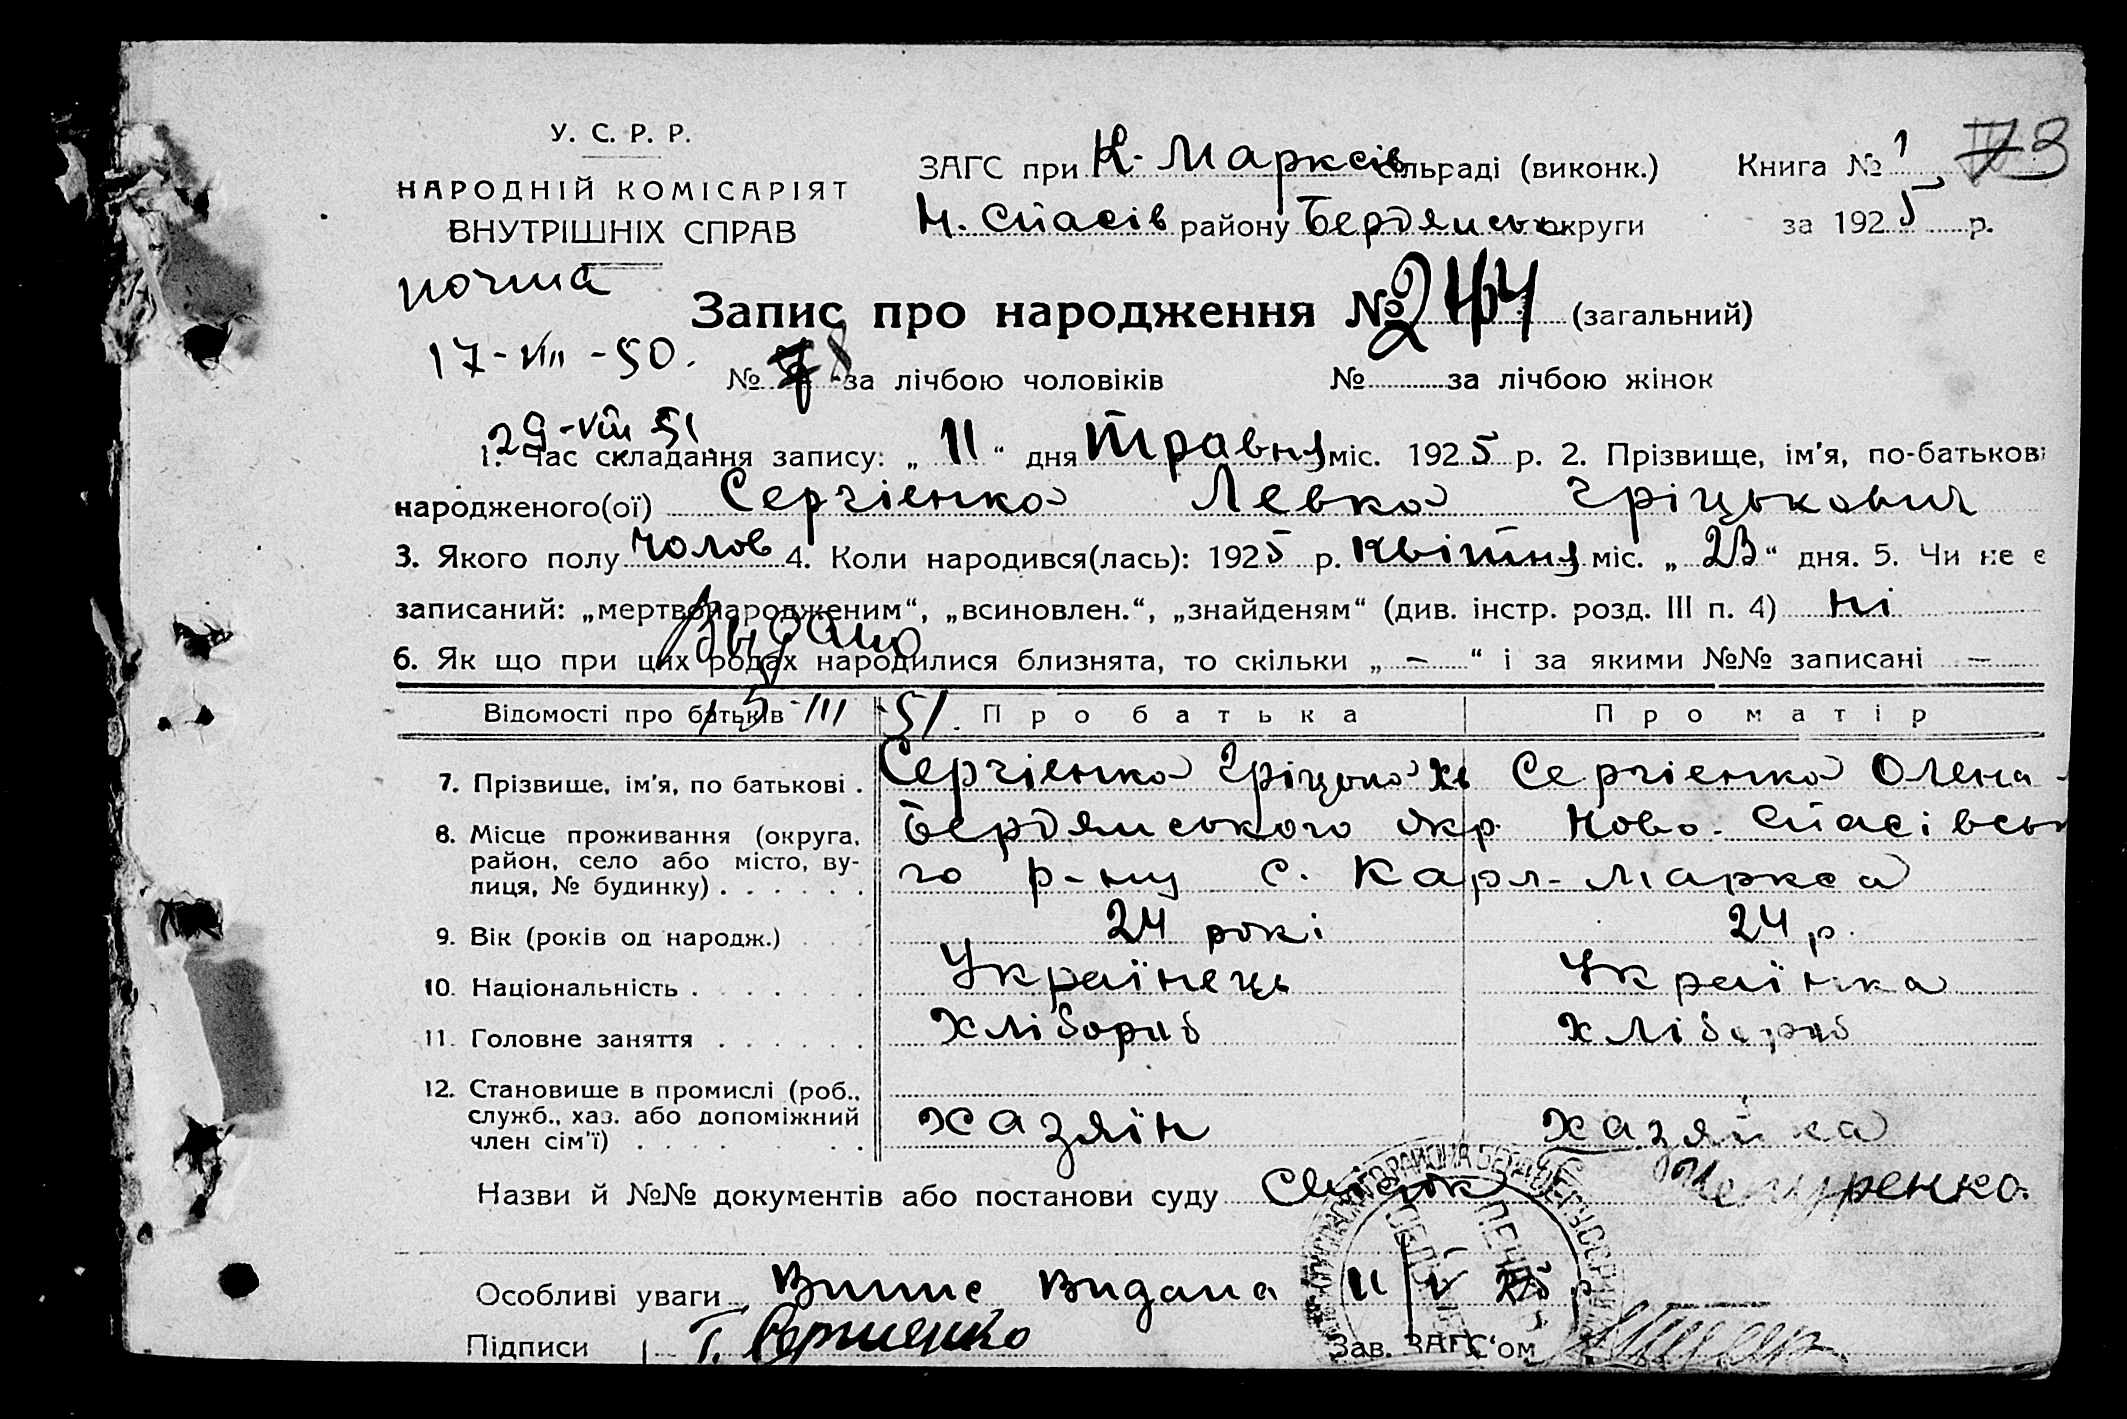 У. С. Р. Р.
НАРОДНІЙ КОМІСАРІЯТ
ВНУТРІШНІХ СПРАВ
ЗАГС при К. Марксів сільраді (виконк.) Книга № 1 73
Н. Спасів району Бердянськ округи за 1925 р.
почта
Запис про народження № 244 (загальний)
17-VIII-50.
№ 8 за лічбою чоловіків № за лічбою жінок
29-VIII 51
1. Час складання запису: „11“ дня Травня міс. 1925 р. 2. Прізвище, ім'я, по-батькові
народженого(ої) Сергієнко Левко Гріцькович
3. Якого полу чолов 4. Коли народився(лась): 1925 р. квітня міс. „23“ дня. 5. Чи не є
записаний: „мертвонародженим“, „всиновлен.“, „знайденям“ (див. інстр. розд. III п. 4) ні
Выдано
6. Як що при цих родах народилися близнята, то скільки „ – “ і за якими №№ записані –
15-III-51.
Відомості про батьків Про батька Про матір
7. Прізвище, ім'я, по батькові . Сергієнко Сергієнко Олена
8. Місце проживання (округа, район, село або місто, вулиця, № будинку) . . . . . . Бердянського окр. Ново-Спасівсько
го р-ну с. Карл-Маркса
9. Вік (років од народж.) . . . 24 рокі 24 р.
10. Національність . . . . . . . Українець Українка
11. Головне заняття . . . . . . Хлібороб хлібороб
12. Становище в промислі (роб., служб., хаз. або допоміжний член сім'ї) . . . . . . . хазяїн хазяйка
Назви й №№ документів або постанови суду Список Чепуренко.
Особливі уваги Випис Видана 11 V 25
Підписи Г. Сергиенко Зав. ЗАГС'ом